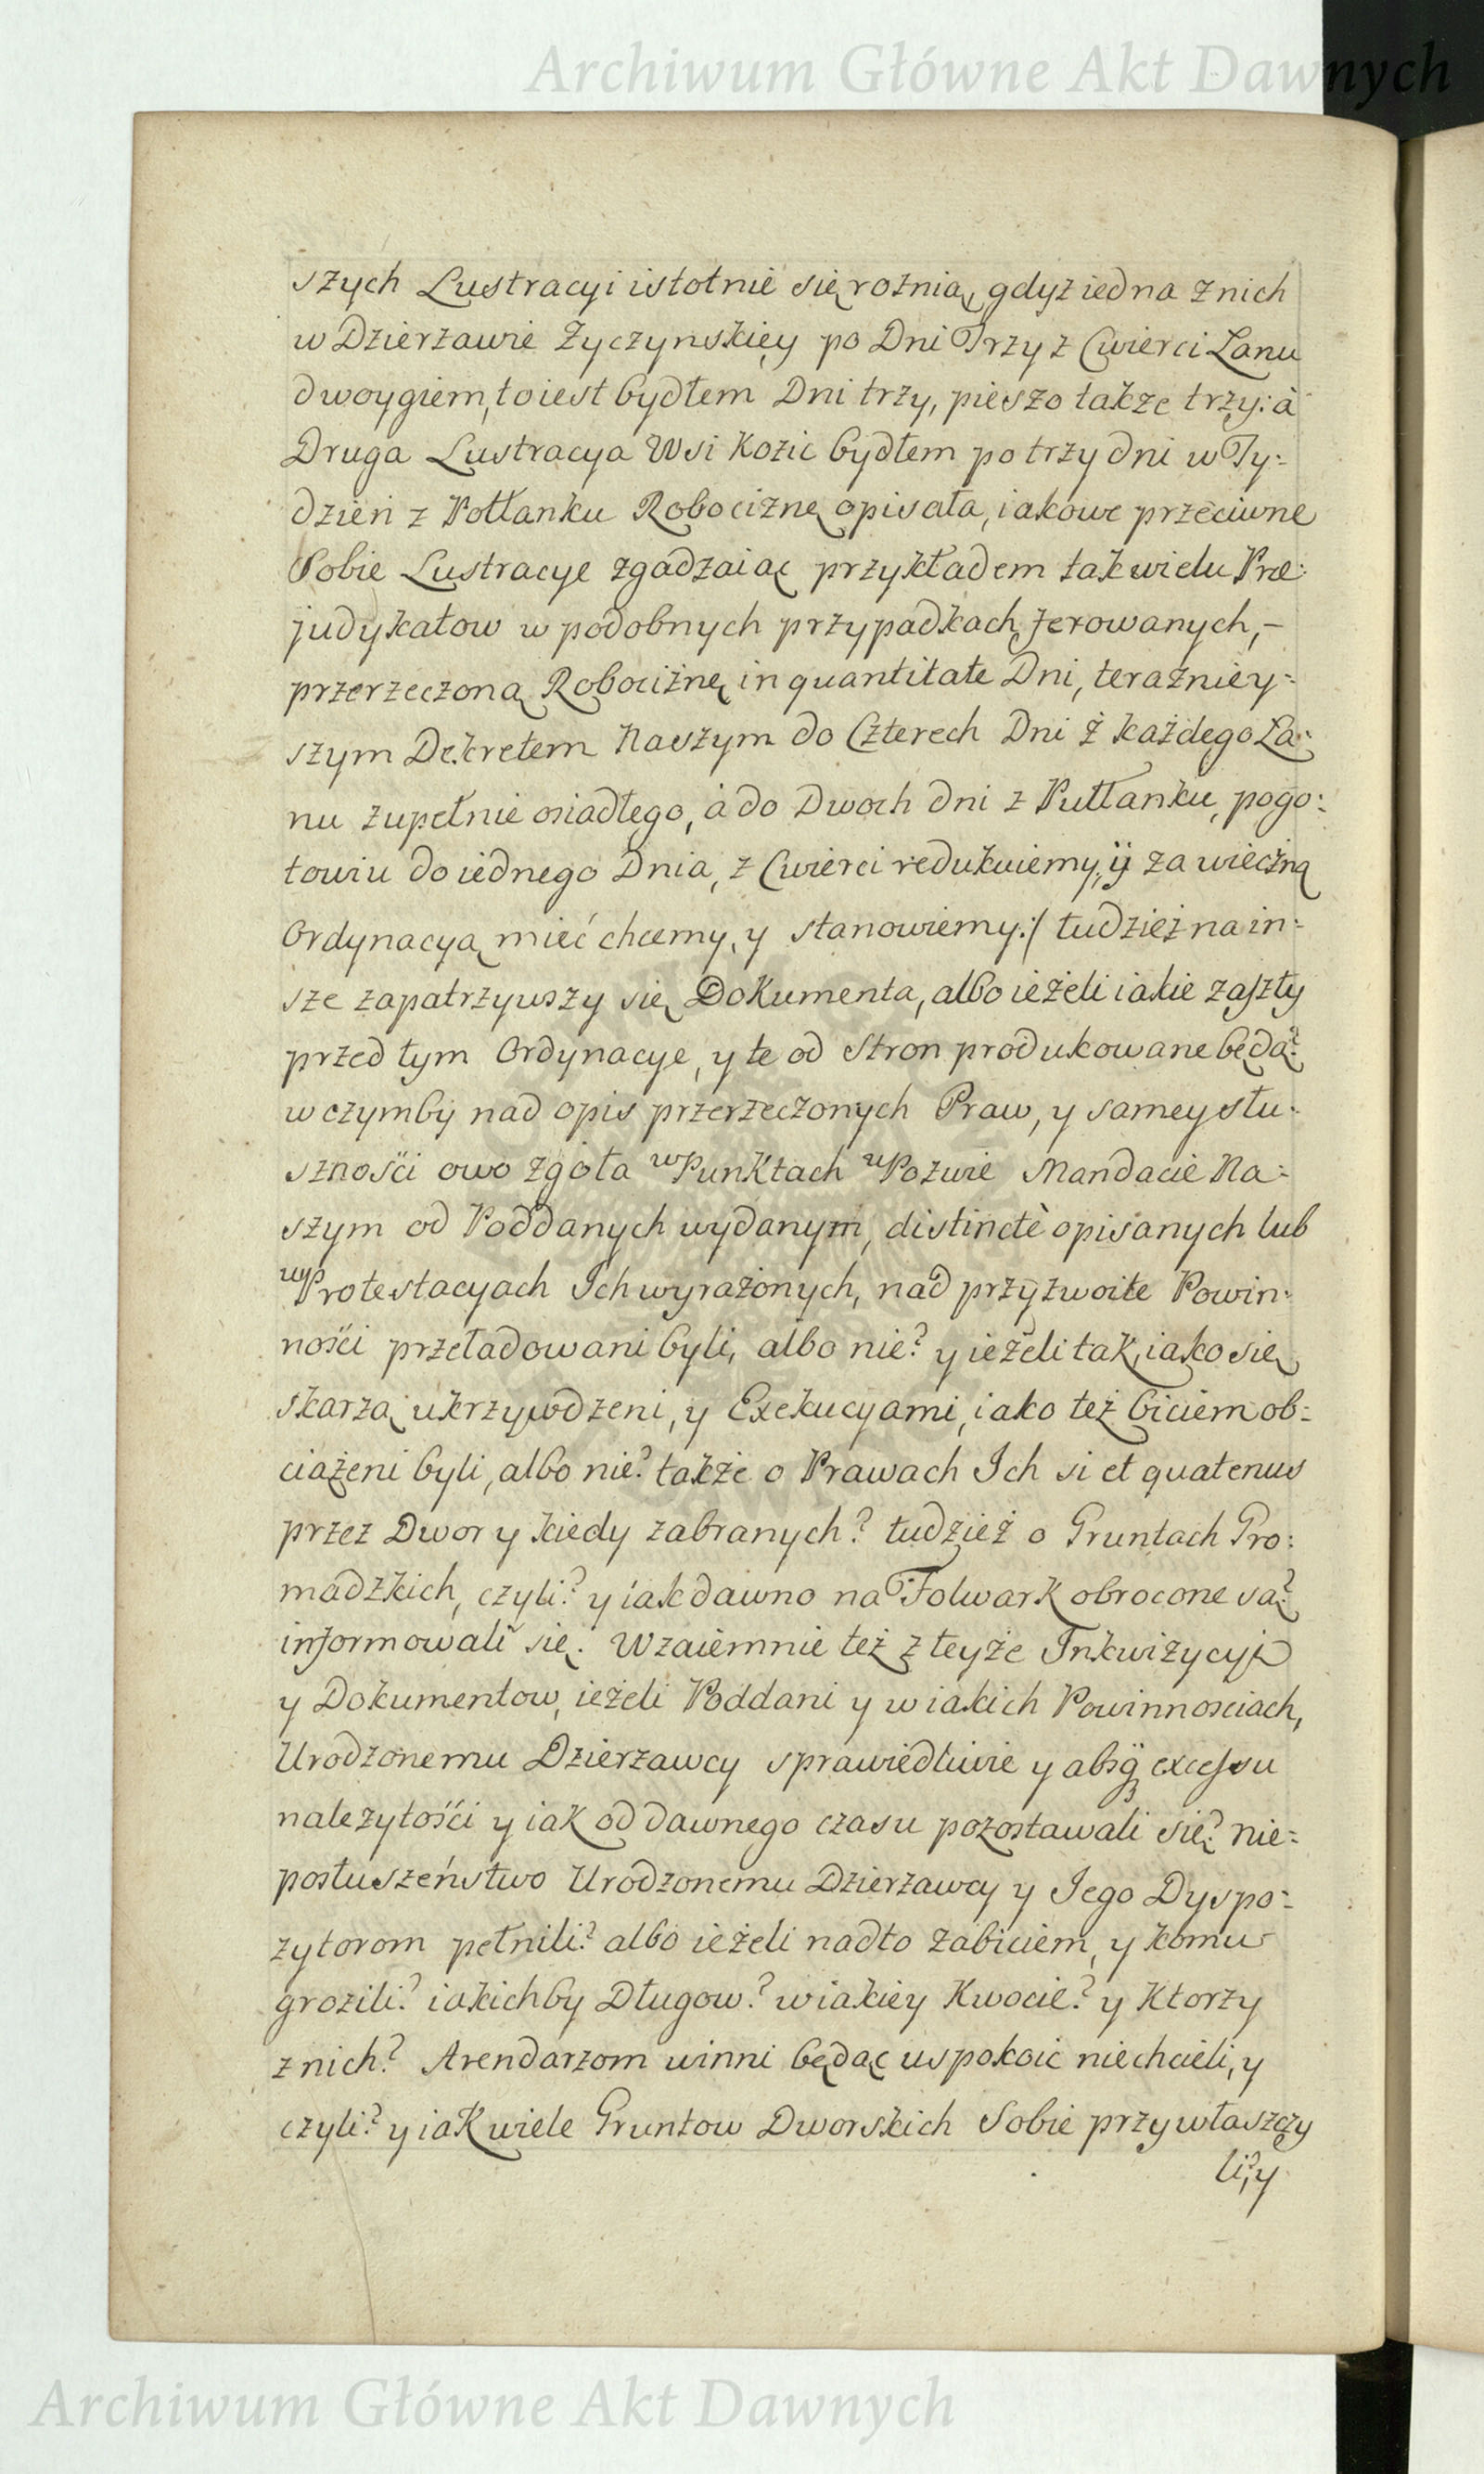 Archiwum Główne Akt Dawnych
szych Lustracyi istotnie się rożnią, gdyż iedna z nich
w Dzierzawie Zyczynskięy po Dni Trzy z Cwierci Lanu
dwoygiem, to iest bydłem Dni trzy, pieszo także trzy: à
Druga Lustracya Wsi Kozic bydłem po trzy dni w Ty:
dzień z Połłanku Robociznę opisała, iakowe przeciwne
Sobie Lustracye zgadzaiąc przykładem tak wielu Præ:
judykatow w podobnych przypadkach ferowanych,-
przerzeczoną Robociżnę in quantitate Dni, teraźniey:
szym Dekretem Naszym do Czterech Dni ż każdego La:
nu zupełnie osiadłego, à do Dwoch dni z Pułłanku, pogo:
towiu do iednego Dnia, z Cwierci redukuiemy, ÿ za wieczną
Ordynacyą mieć chcemy, y stanowiemy:/ tudzież na in:
sze zapatrzywszy się Dokumenta, albo ieżeli iakie zaszły
przed tym Ordynacye, y te od Stron produkowane będą?
w czymby nad opis przerzeczonych Praw, y samey słu:
szności owo zgoła w Punktach w Pozwie Mandacie Na:
szym od Poddanych wydanym, distinctè opisanych lub
w Protestacyach Ich wyrażonych, nad przyzwoite Powin:
ności przeładowani byli, albo nie? y ieżeli tak, iako się
skarżą ukrzywdzeni, y Exekucyami, iako też biciem ob:
ciążeni byli, albo nie? także o Prawach Ich si et quatenus
przez Dwor y kiedy zabranych? tudzież o Gruntach Gro:
madzkich, czyli? y iak dawno na Folwark obrocone są?
informowali się. Wzaiemnie też z teyże Inkwizycyi
y Dokumentow, ieżeli Poddani y w iakich Powinnosciach,
Urodzonemu Dzierzawcy sprawiedliwie y absq excessu
należytości y iak od dawnego czasu pozostawali się? nie:
posłuszeństwo Urodzonemu Dzierżawcy y Jego Dyspo:
zytorom pełnili? albo ieżeli nadto zabiciem, y komu
grozili? iakichby Długow? w iakiey Kwocie? y Ktorzy
z nich? Arendarzom winni będąc uspokoic niechcieli, y
czyli? y iak wiele Gruntow Dworskich Sobie przywłaszczy
li? y
Archiwum Główne Akt Dawnych